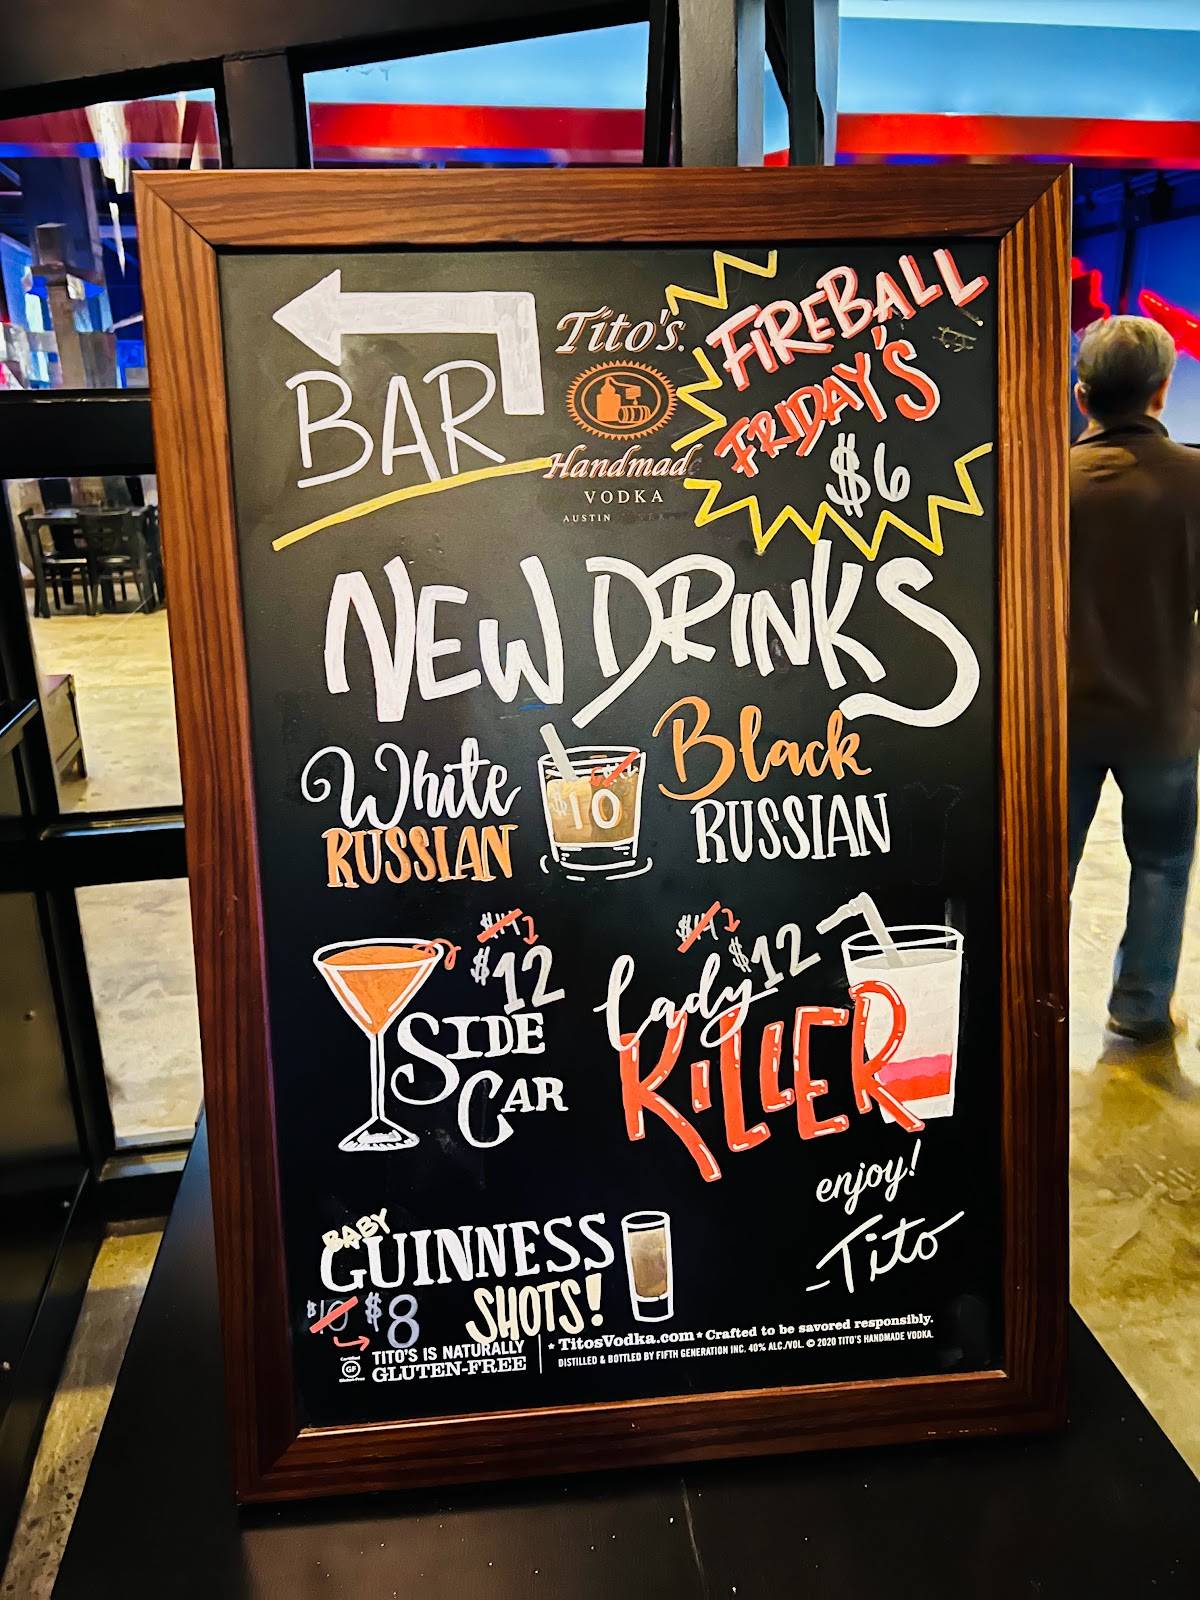 BAR
Tito's
Handmade
VODKA
AUSTIN
FIREBALL
FRIDAY'S
$6
NEW DRINKS
White
RUSSIAN
$10
Black
RUSSIAN
$14
$12
SIDE
CAR
$14
$12
Lady
KILLER
enjoy!
-Tito
BABY
GUINNESS
SHOTS!
$10 $8
Certified
GF
Gluten-Free
TITO'S IS NATURALLY
GLUTEN-FREE
★ TitosVodka.com ★ Crafted to be savored responsibly.
DISTILLED & BOTTLED BY FIFTH GENERATION INC. 40% ALC./VOL. © 2020 TITO'S HANDMADE VODKA.